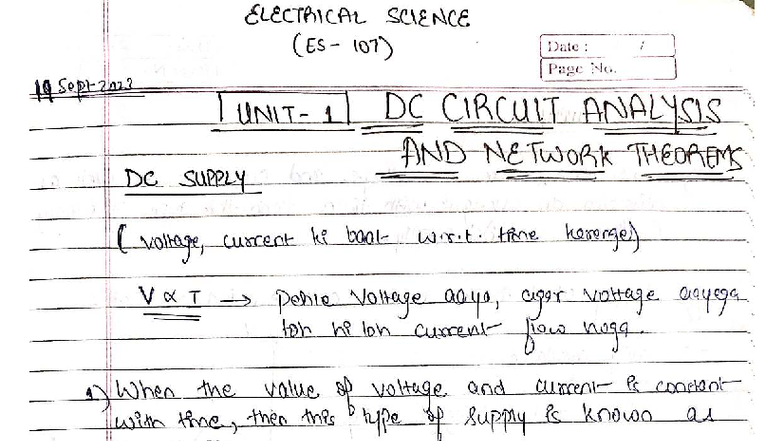 ELECTRICAL SCIENCE
(ES- 107)
Date : /
Page No.
19 Sept-2023
UNIT-1 DC CIRCUIT ANALYSIS
AND NETWORK THEOREMS
DC SUPPLY
( voltage, current ki baat w.r.t. time karenge)
V ∝ T → Pehle Voltage aaya, agar voltage aayega
toh hi toh current flow hoga.
1) When the value of voltage and current is constant
with time, then this type of supply is known as